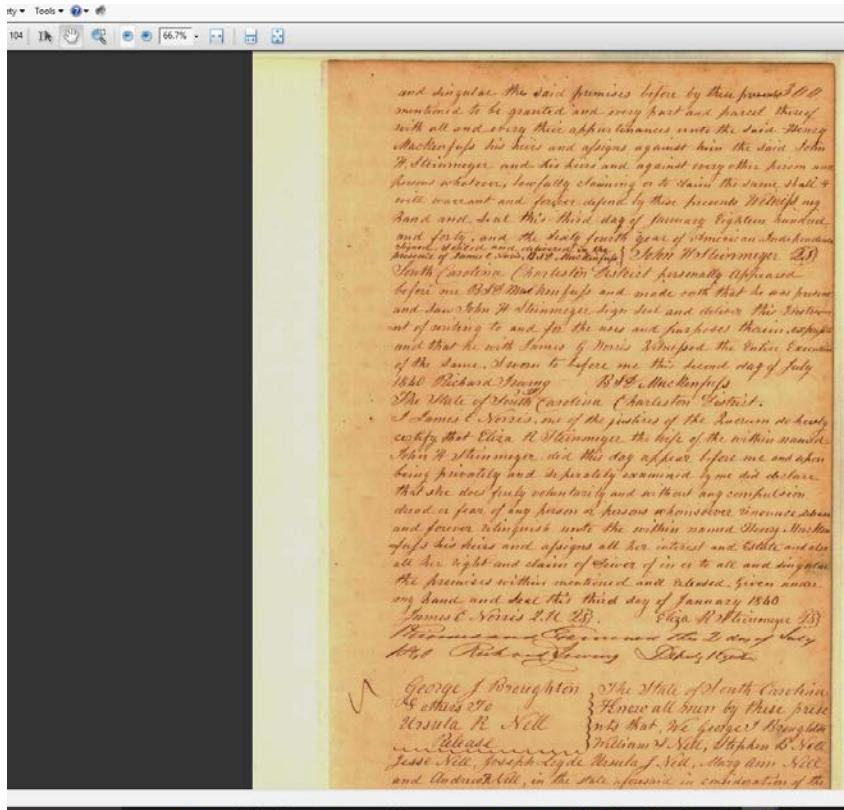 ty Tools
104 66.7%
300
and singular the said premises before by these presents
mentioned to be granted and every part and parcel thereof
with all and every their appurtenances unto the said Henry
Mackenfuss his heirs and assigns against him the said John
H. Steinmeyer and his heirs and against every other person and
persons whatever, lawfully claiming or to claim the same shall &
will warrant and forever defend by these presents Witness my
hand and seal this third day of January Eighteen hundred
and forty, and the sixty fourth year of American Independence
signed, sealed and delivered in the
presence of James C Norris, B S D Mackenfuss } John H Steinmeyer LS
South Carolina Charleston District personally appeared
before me B S D Mackenfuss and made oath that he was present
and saw John H Steinmeyer sign seal and deliver this Instrum
ent of writing to and for the uses and purposes therein
and that he with James G Norris Witnessed the Entire Execution
of the same. Sworn to before me this second day of July
1840 Richard B S D Mackenfuss
The State of South Carolina Charleston District.
I James C Norris, one of the justices of the Quorum do hereby
certify that Eliza R Steinmeyer the wife of the within named
John H Steinmeyer did this day appear before me and upon
being privately and seperately examined by me did declare
that she does freely voluntarily and without any compulsion
dread or fear of any person or persons whomsoever renounce release
and forever relinquish unto the within named Henry Macken
fuss his heirs and assigns all her interest and Estate and also
all her right and claim of Dower of in or to all and singular
the premises within mentioned and released. Given under
my hand and seal this third day of January 1840
James C Norris Q.U LS. Eliza R Steinmeyer LS
and Examined this 2 day of July
1840 Deputy
George J Broughton } The State of South Carolina
& others To } Know all men by these prese
Ursula R Nell } nts that, We George J Broughton
Release } William S Nell, Stephen B Nell
Jesse Nell, Joseph Ursula J. Nell, Mary Ann Nell
and Andrew R Nell, in the state aforesaid in consideration of the